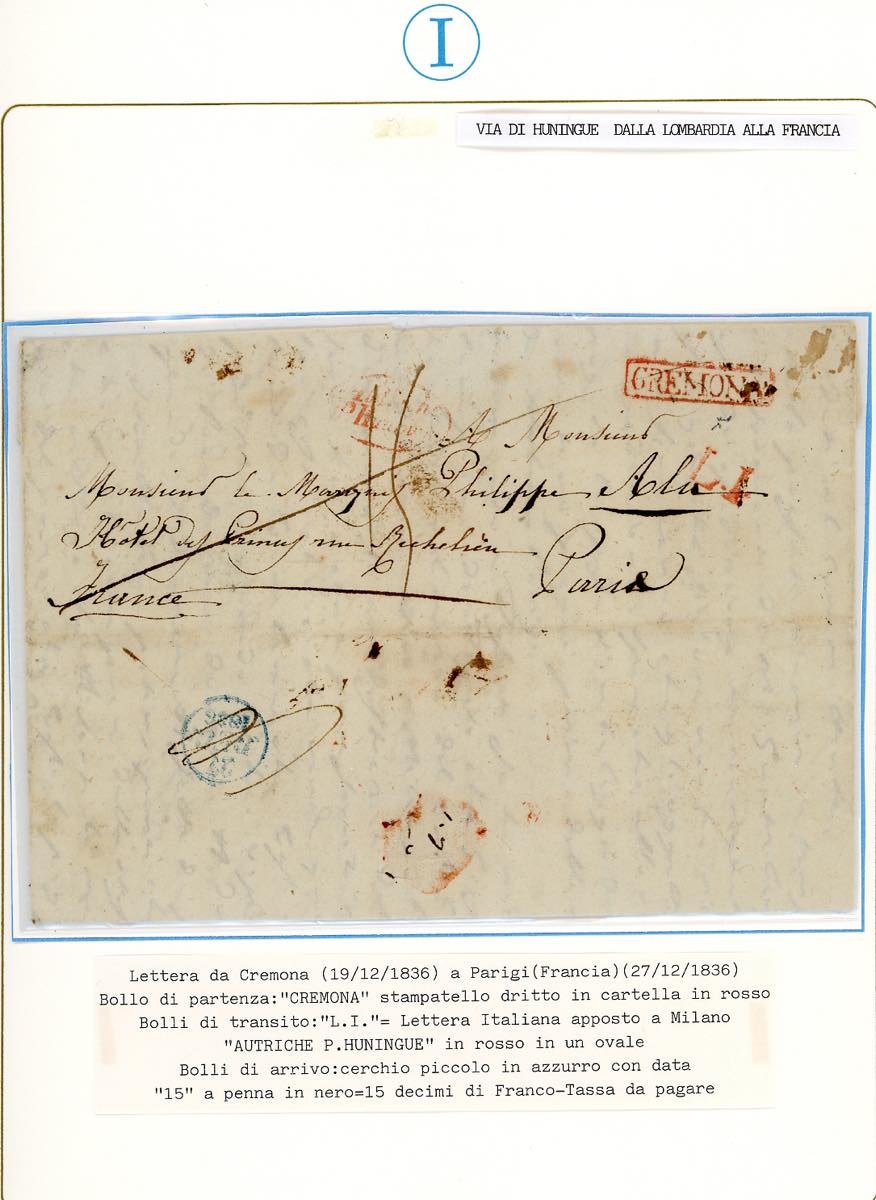 I
VIA DI HUNINGUE DALLA LOMBARDIA ALLA FRANCIA
CREMONA
A Monsieur
L.I.
Monsieur le Marquis Philippe Ala
Hôtel des Princes rue Richelieu
Paris
France
15
Lettera da Cremona (19/12/1836) a Parigi(Francia)(27/12/1836)
Bollo di partenza:"CREMONA" stampatello dritto in cartella in rosso
Bolli di transito:"L.I."= Lettera Italiana apposto a Milano
"AUTRICHE P.HUNINGUE" in rosso in un ovale
Bolli di arrivo:cerchio piccolo in azzurro con data
"15" a penna in nero=15 decimi di Franco-Tassa da pagare